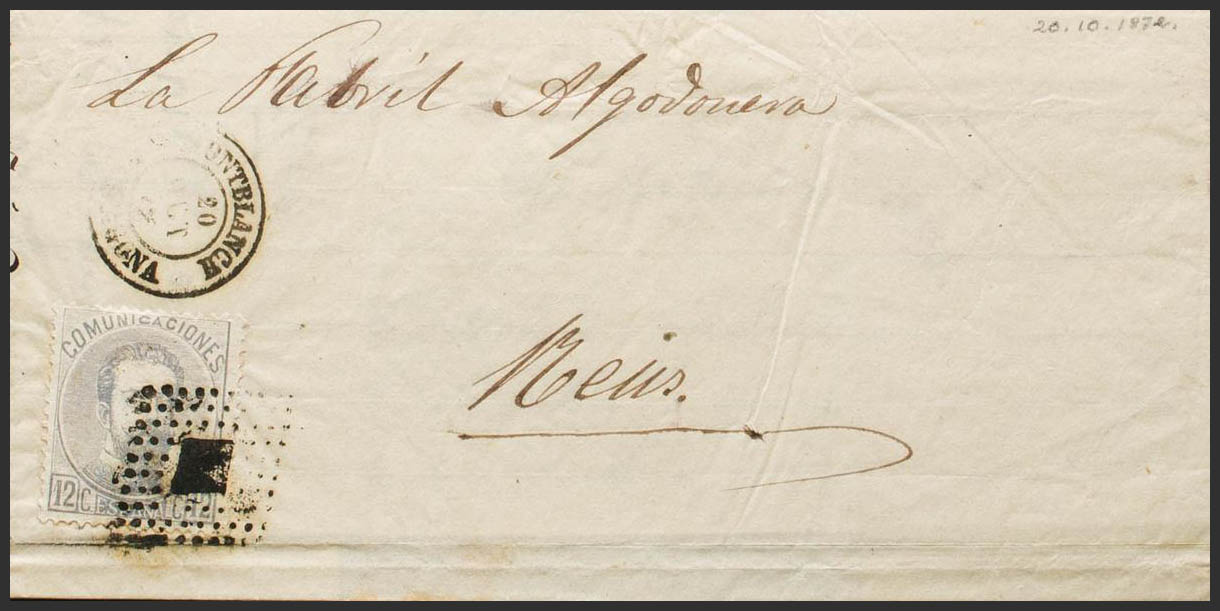 20.10.1872.
La Fabril Algodonera
MONTBLANCH
20
OCT
Reus.
COMUNICACIONES
12 C. ESPAÑA C. 12